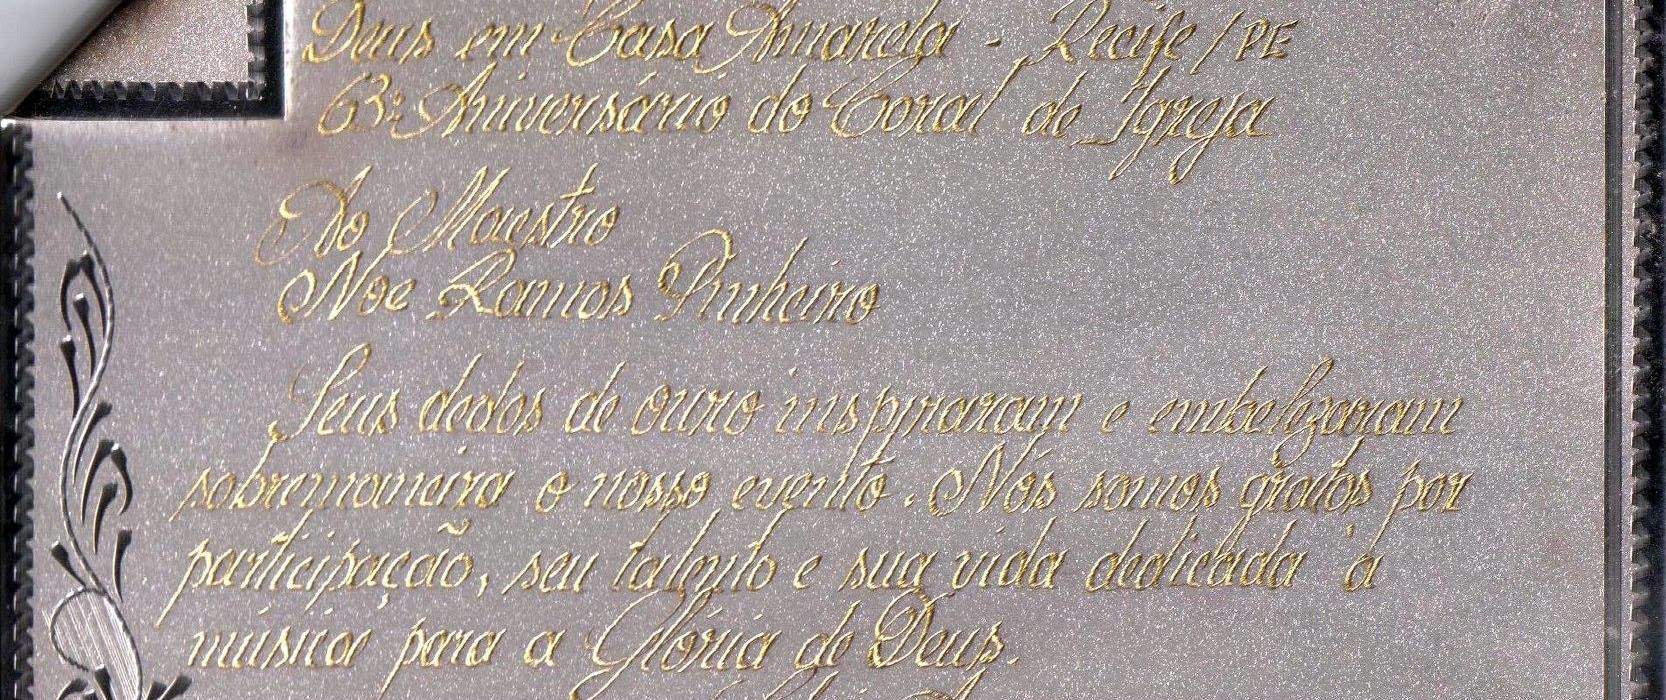 Deus em Casa Amarela - Recife/PE
63º Aniversário do Coral de Igreja
Ao Maestro
Noe Ramos Pinheiro
Seus dedos de ouro inspiraram e embelezaram
sobremaneira o nosso evento. Nós somos gratos por
participação, seu talento e sua vida dedicada à
música para a Glória de Deus.